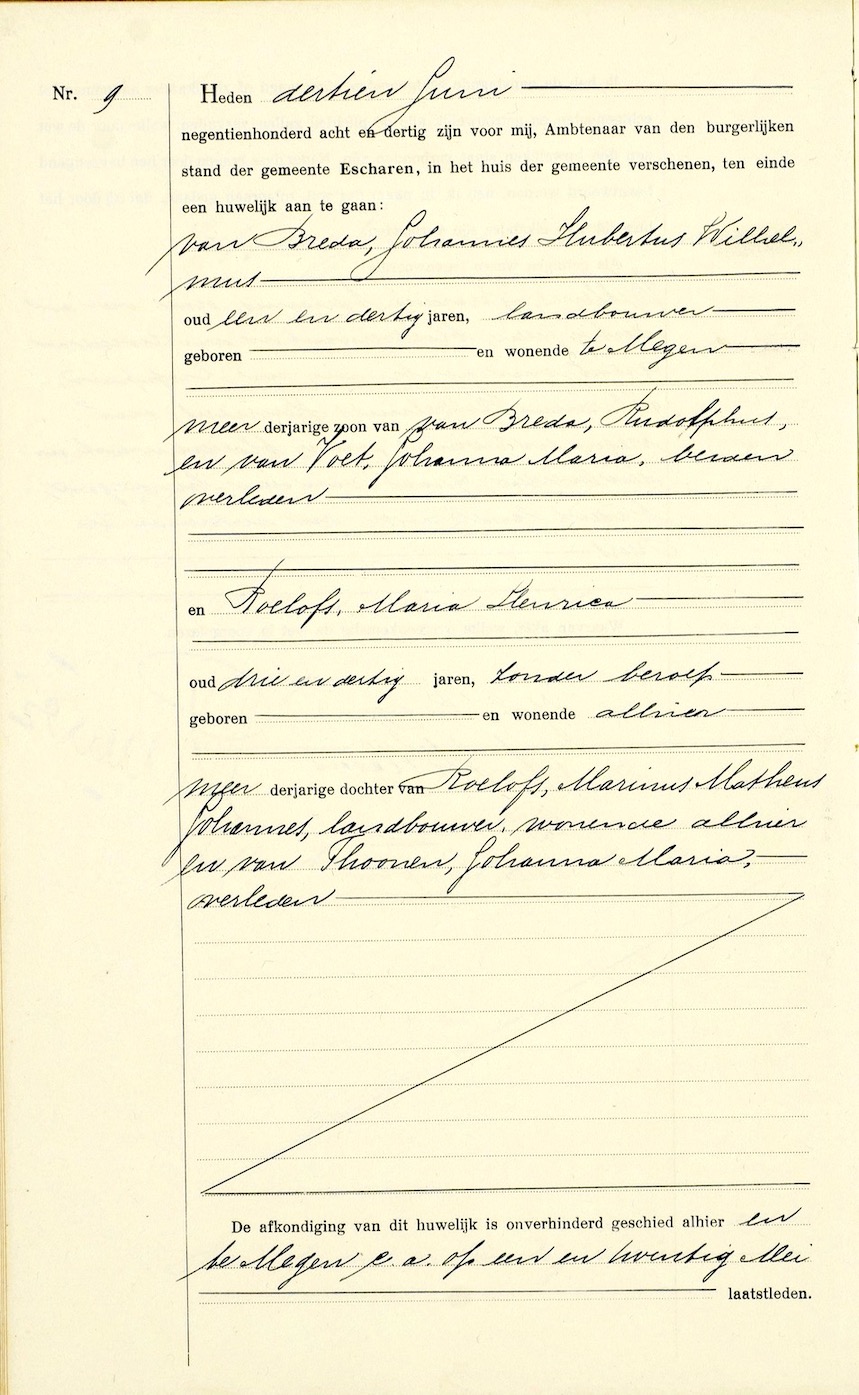 Nr. 9
Heden dertien Juni
negentienhonderd acht en dertig zijn voor mij, Ambtenaar van den burgerlijken
stand der gemeente Escharen, in het huis der gemeente verschenen, ten einde
een huwelijk aan te gaan:
van Breda, Johannes Hubertus Wilhel„
mus
oud een en dertig jaren, landbouwer
geboren en wonende te Megen
meer derjarige zoon van van Breda, Rudolphus,
en van Voet, Johanna Maria, beiden
overleden
en Roelofs, Maria Henrica
oud drie en dertig jaren, zonder beroep
geboren en wonende alhier
meer derjarige dochter van Roelofs, Marinus Matheus
Johannes, landbouwer, wonende alhier
en van Thoonen, Johanna Maria,
overleden
De afkondiging van dit huwelijk is onverhinderd geschied alhier en
te Megen c.a. op een en twintig Mei
laatstleden.